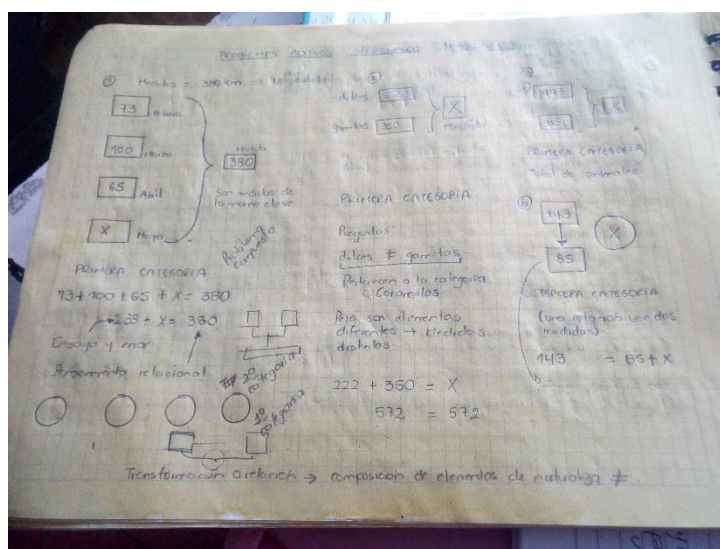 PROBLEMAS ADITIVOS
① = 380 km
73 Febrero
100 Marzo
65 Abril
X Mayo
380
Son medidas de
la misma clase
Problema
compuesto
PRIMERA CATEGORIA
73 + 100 + 65 + X = 380
238 + X = 380
Ensayo y error
Pensamiento relacional
2º
categoria
1º
categoria
②
dulces
gomitas 350
X
PRIMERA CATEGORIA
Preguntas:
dulces ≠ gomitas
Pertenecen a la categoria
Caramelos
Pero son elementos
diferentes → Medidas
distintas
222 + 350 = X
572 = 572
a
143
PRIMERA CATEGORIA
Total de animales
b
143
X
85
TERCERA CATEGORIA
(una relación une dos
medidas)
143 = 85 + X
Transformación o relación → composición de elementos de naturaleza ≠